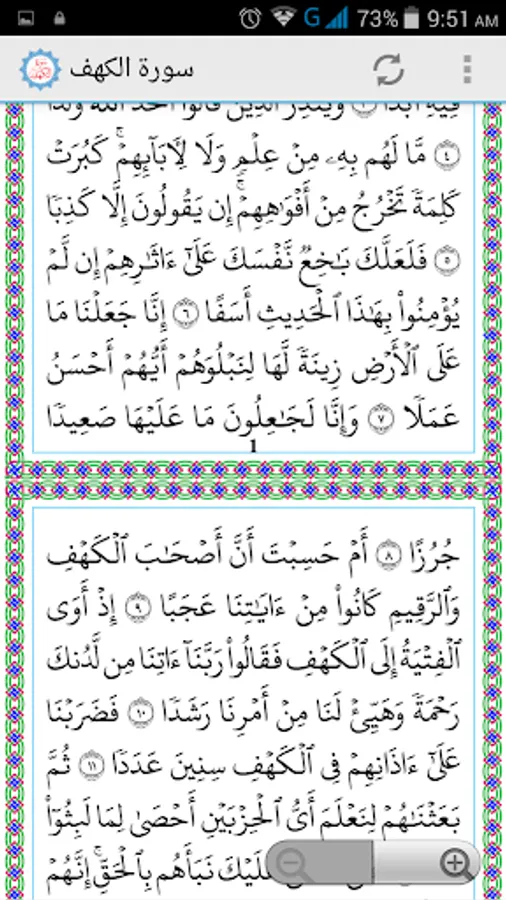 G 73% 9:51 AM
سورة الكهف
مَّا لَهُم بِهِۦ مِنْ عِلْمٍ وَلَا لِآبَآئِهِمْ ۚ كَبُرَتْ ٤
كَلِمَةً تَخْرُجُ مِنْ أَفْوَٰهِهِمْ ۚ إِن يَقُولُونَ إِلَّا كَذِبًا
٥ فَلَعَلَّكَ بَٰخِعٌ نَّفْسَكَ عَلَىٰٓ ءَاثَٰرِهِمْ إِن لَّمْ
يُؤْمِنُوا۟ بِهَٰذَا ٱلْحَدِيثِ أَسَفًا ٦ إِنَّا جَعَلْنَا مَا
عَلَى ٱلْأَرْضِ زِينَةً لَّهَا لِنَبْلُوَهُمْ أَيُّهُمْ أَحْسَنُ
عَمَلًا ٧ وَإِنَّا لَجَٰعِلُونَ مَا عَلَيْهَا صَعِيدًا
1
جُرُزًا ٨ أَمْ حَسِبْتَ أَنَّ أَصْحَٰبَ ٱلْكَهْفِ
وَٱلرَّقِيمِ كَانُوا۟ مِنْ ءَايَٰتِنَا عَجَبًا ٩ إِذْ أَوَى
ٱلْفِتْيَةُ إِلَى ٱلْكَهْفِ فَقَالُوا۟ رَبَّنَآ ءَاتِنَا مِن لَّدُنكَ
رَحْمَةً وَهَيِّئْ لَنَا مِنْ أَمْرِنَا رَشَدًا ١٠ فَضَرَبْنَا
عَلَىٰٓ ءَاذَانِهِمْ فِى ٱلْكَهْفِ سِنِينَ عَدَدًا ١١ ثُمَّ
بَعَثْنَٰهُمْ لِنَعْلَمَ أَىُّ ٱلْحِزْبَيْنِ أَحْصَىٰ لِمَا لَبِثُوٓا۟
عَلَيْكَ نَبَأَهُم بِٱلْحَقِّ ۚ إِنَّهُمْ